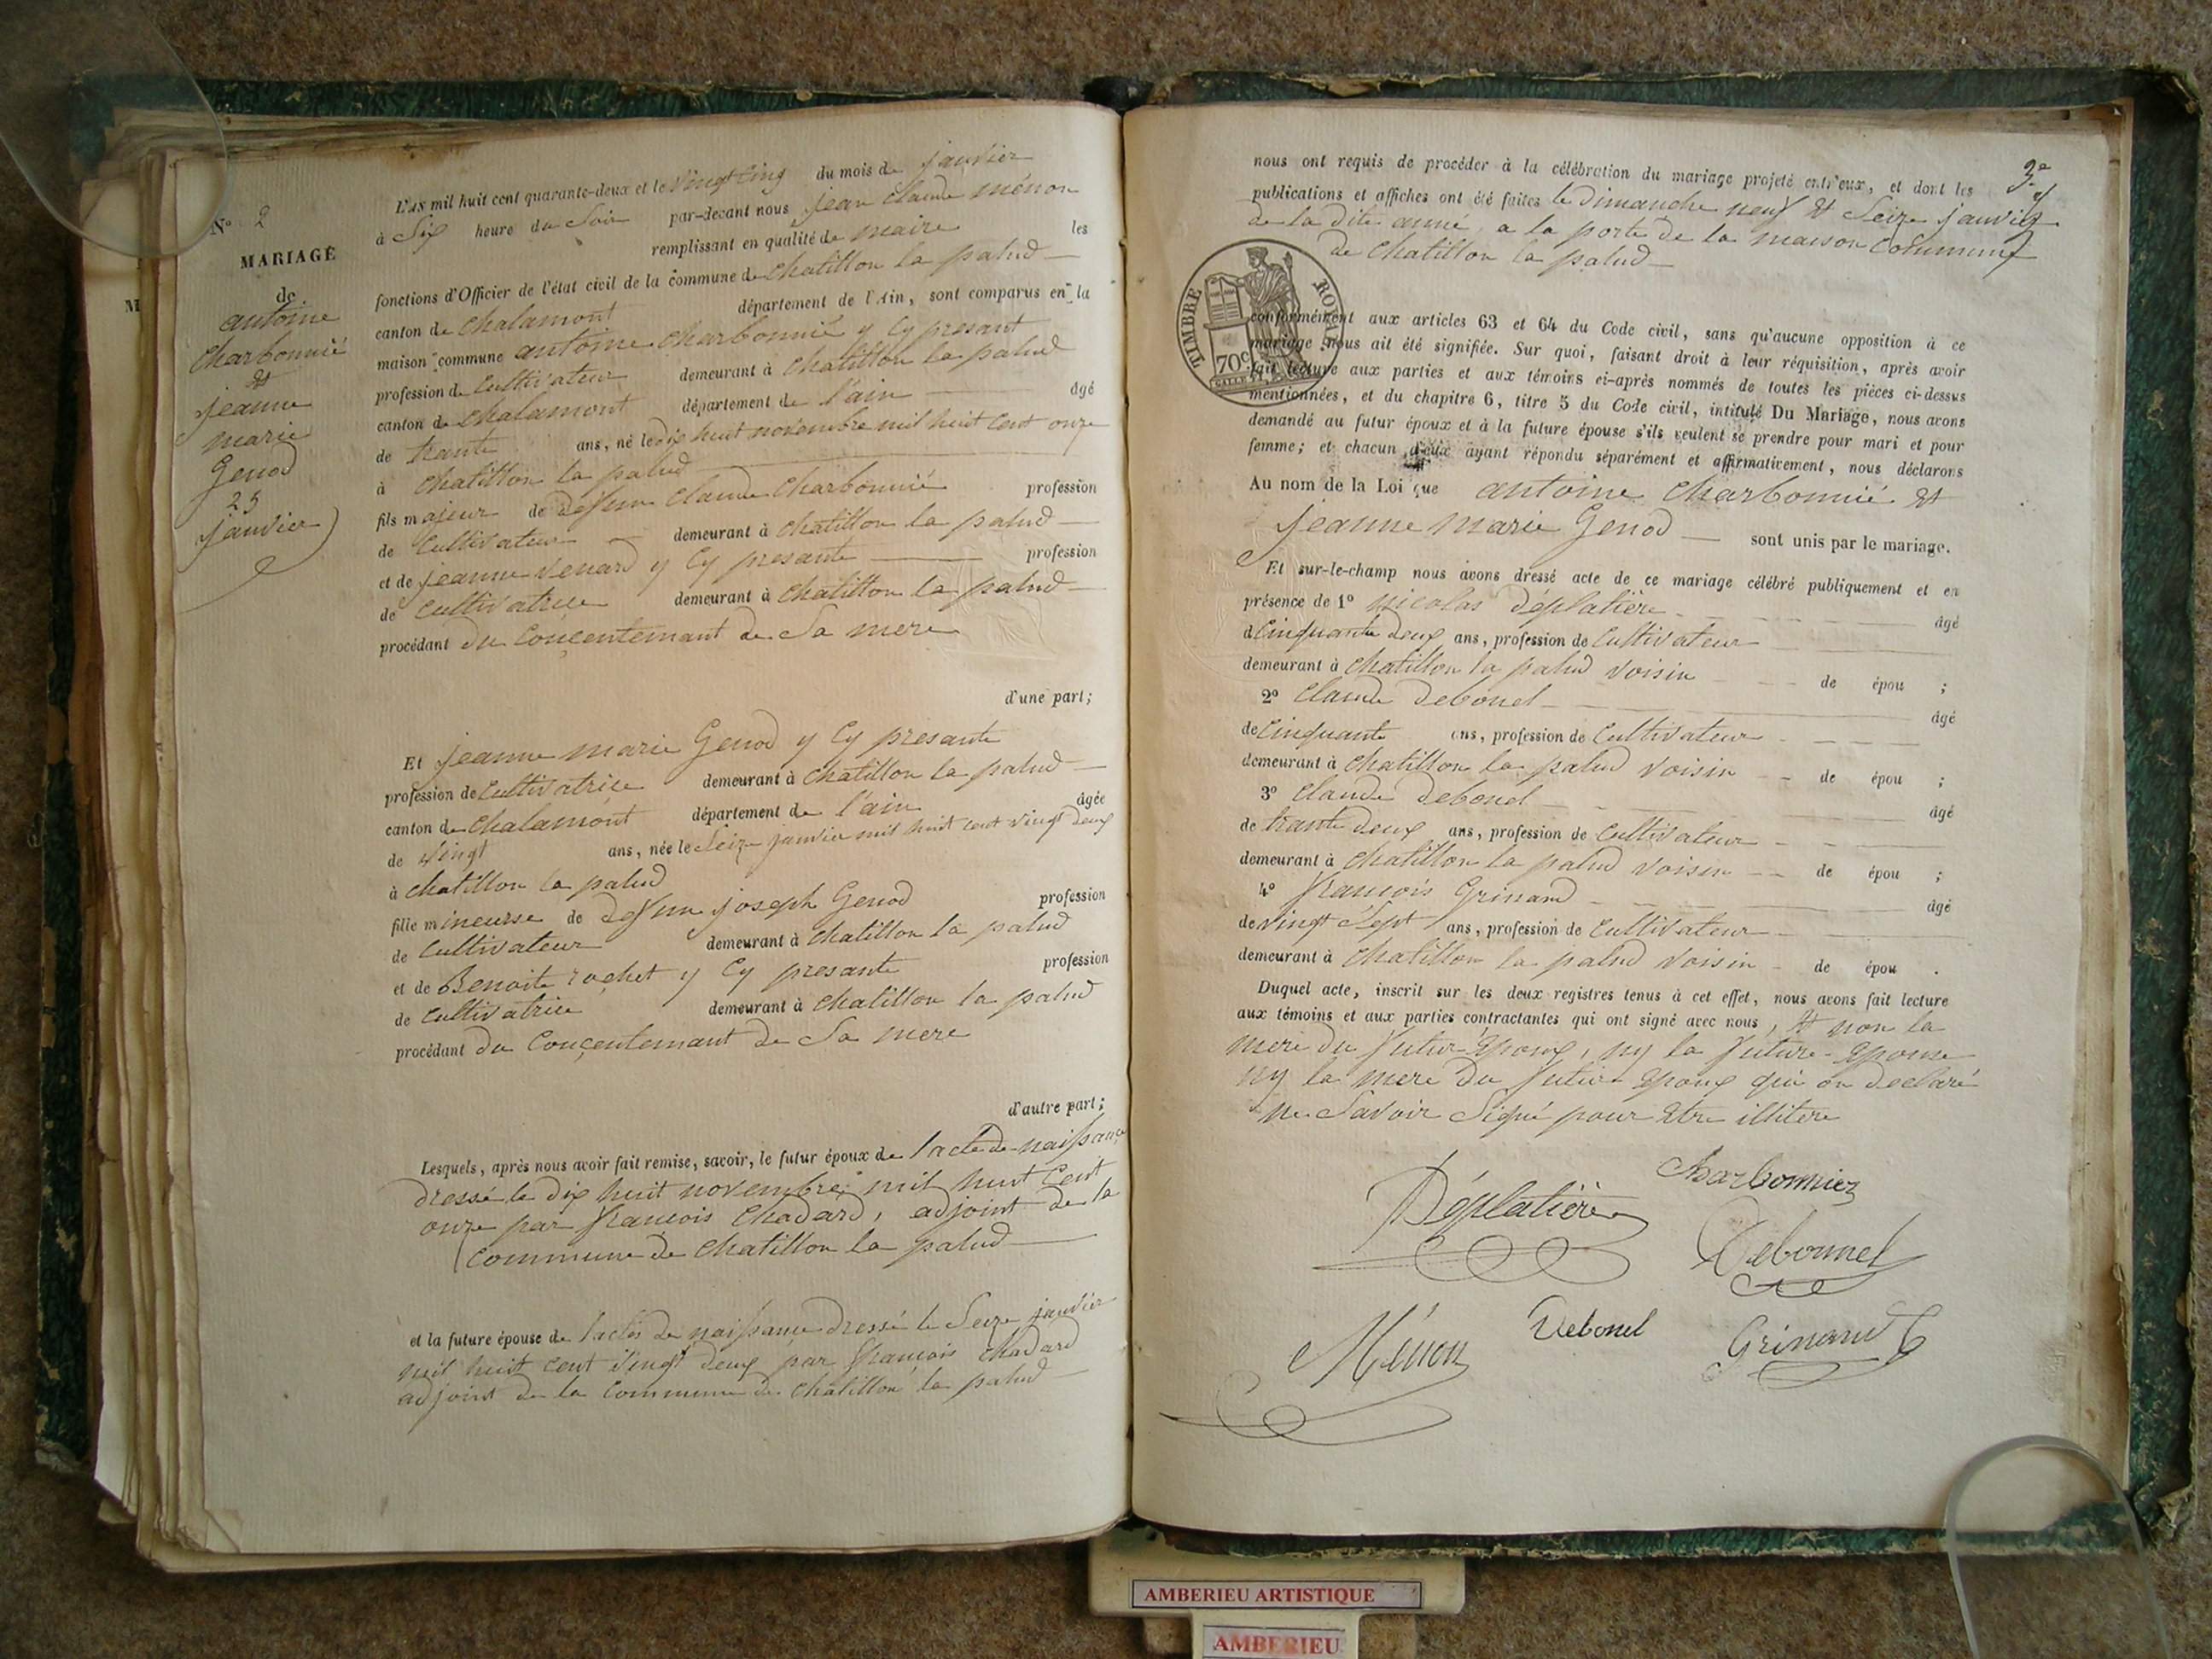 N° 2
MARIAGE
de
antoine
Charbonnié
et
jeanne
marie
Genod
25
janvier
L'AN mil huit cent quarante-deux et le vingt cinq du mois de janvier
à Six heure du Soir par-devant nous jean claude ménon
remplissant en qualité de maire les
fonctions d'Officier de l'état civil de la commune de chatillon la palud
canton de chalamont département de l'Ain, sont comparus en la
maison commune antoine charbonnié y cy presant
profession de cultivateur demeurant à chatillon la palud
canton de chalamont département de l'ain âgé
de trante ans, né le dix huit novembre mil huit cent onze
à chatillon la palud
fils majeur de defun claude charbonnié profession
de cultivateur demeurant à chatillon la palud
et de jeanne venard y cy presante profession
de cultivatrice demeurant à chatillon la palud
procédant du conçentemant de Sa mere
d'une part;
Et jeanne marie Genod y cy presante
profession de cultivatrice demeurant à chatillon la palud
canton de chalamont département de l'ain âgée
de vingt ans, née le Seize janvier mil huit cent vingt deux
à chatillon la palud
fille mineurse de defun joseph Genod profession
de cultivateur demeurant à chatillon la palud
et de Benoite rochet y cy presante profession
de cultivatrice demeurant à chatillon la palud
procédant du conçentemant de Sa mere
d'autre part;
Lesquels, après nous avoir fait remise, savoir, le futur époux de l'acte de naissance
dressé le dix huit novembre mil huit cent
onze par françois chadard, adjoint de la
commune de chatillon la palud
et la future épouse de l'actes de naissance dressé le Seize janvier
mil huit cent vingt deux par françois chadard
adjoint de la commune de chatillon la palud
3e
nous ont requis de procéder à la célébration du mariage projeté entr'eux, et dont les
publications et affiches ont été faites le dimanche neuf et Seize janvier
de la dite anné, a la porte de la maison commune
de chatillon la palud
TIMBRE ROYAL
70c
conformément aux articles 63 et 64 du Code civil, sans qu'aucune opposition à ce
mariage nous ait été signifiée. Sur quoi, faisant droit à leur réquisition, après avoir
fait lecture aux parties et aux témoins ci-après nommés de toutes les pièces ci-dessus
mentionnées, et du chapitre 6, titre 5 du Code civil, intitulé Du Mariage, nous avons
demandé au futur époux et à la future épouse s'ils veulent se prendre pour mari et pour
femme; et chacun d'eux ayant répondu séparément et affirmativement, nous déclarons
Au nom de la Loi que antoine charbonnié et
jeanne marie Genod sont unis par le mariage.
Et sur-le-champ nous avons dressé acte de ce mariage célébré publiquement et en
présence de 1° nicolas déplatière âgé
de cinquante deux ans, profession de cultivateur
demeurant à chatillon la palud voisin de épou ;
2° claude debonel âgé
de cinquante ans, profession de cultivateur
demeurant à chatillon la palud voisin de épou ;
3° claude debonel âgé
de trante deux ans, profession de cultivateur
demeurant à chatillon la palud voisin de épou ;
4° françois Grinand âgé
de vingt Sept ans, profession de cultivateur
demeurant à chatillon la palud voisin de épou .
Duquel acte, inscrit sur les deux registres tenus à cet effet, nous avons fait lecture
aux témoins et aux parties contractantes qui ont signé avec nous, et non la
mere du futur époux, ny la future épouse
ny la mere du futur époux qui on declaré
ne Savoir Signé pour etre illitere
Charbonnier
Déplatière
Debonnel
Ménon
Debonel
Grinand
AMBERIEU ARTISTIQUE
AMBERIEU